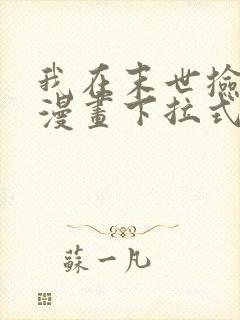 我在末世撿
漫畫下拉式
蘇一凡